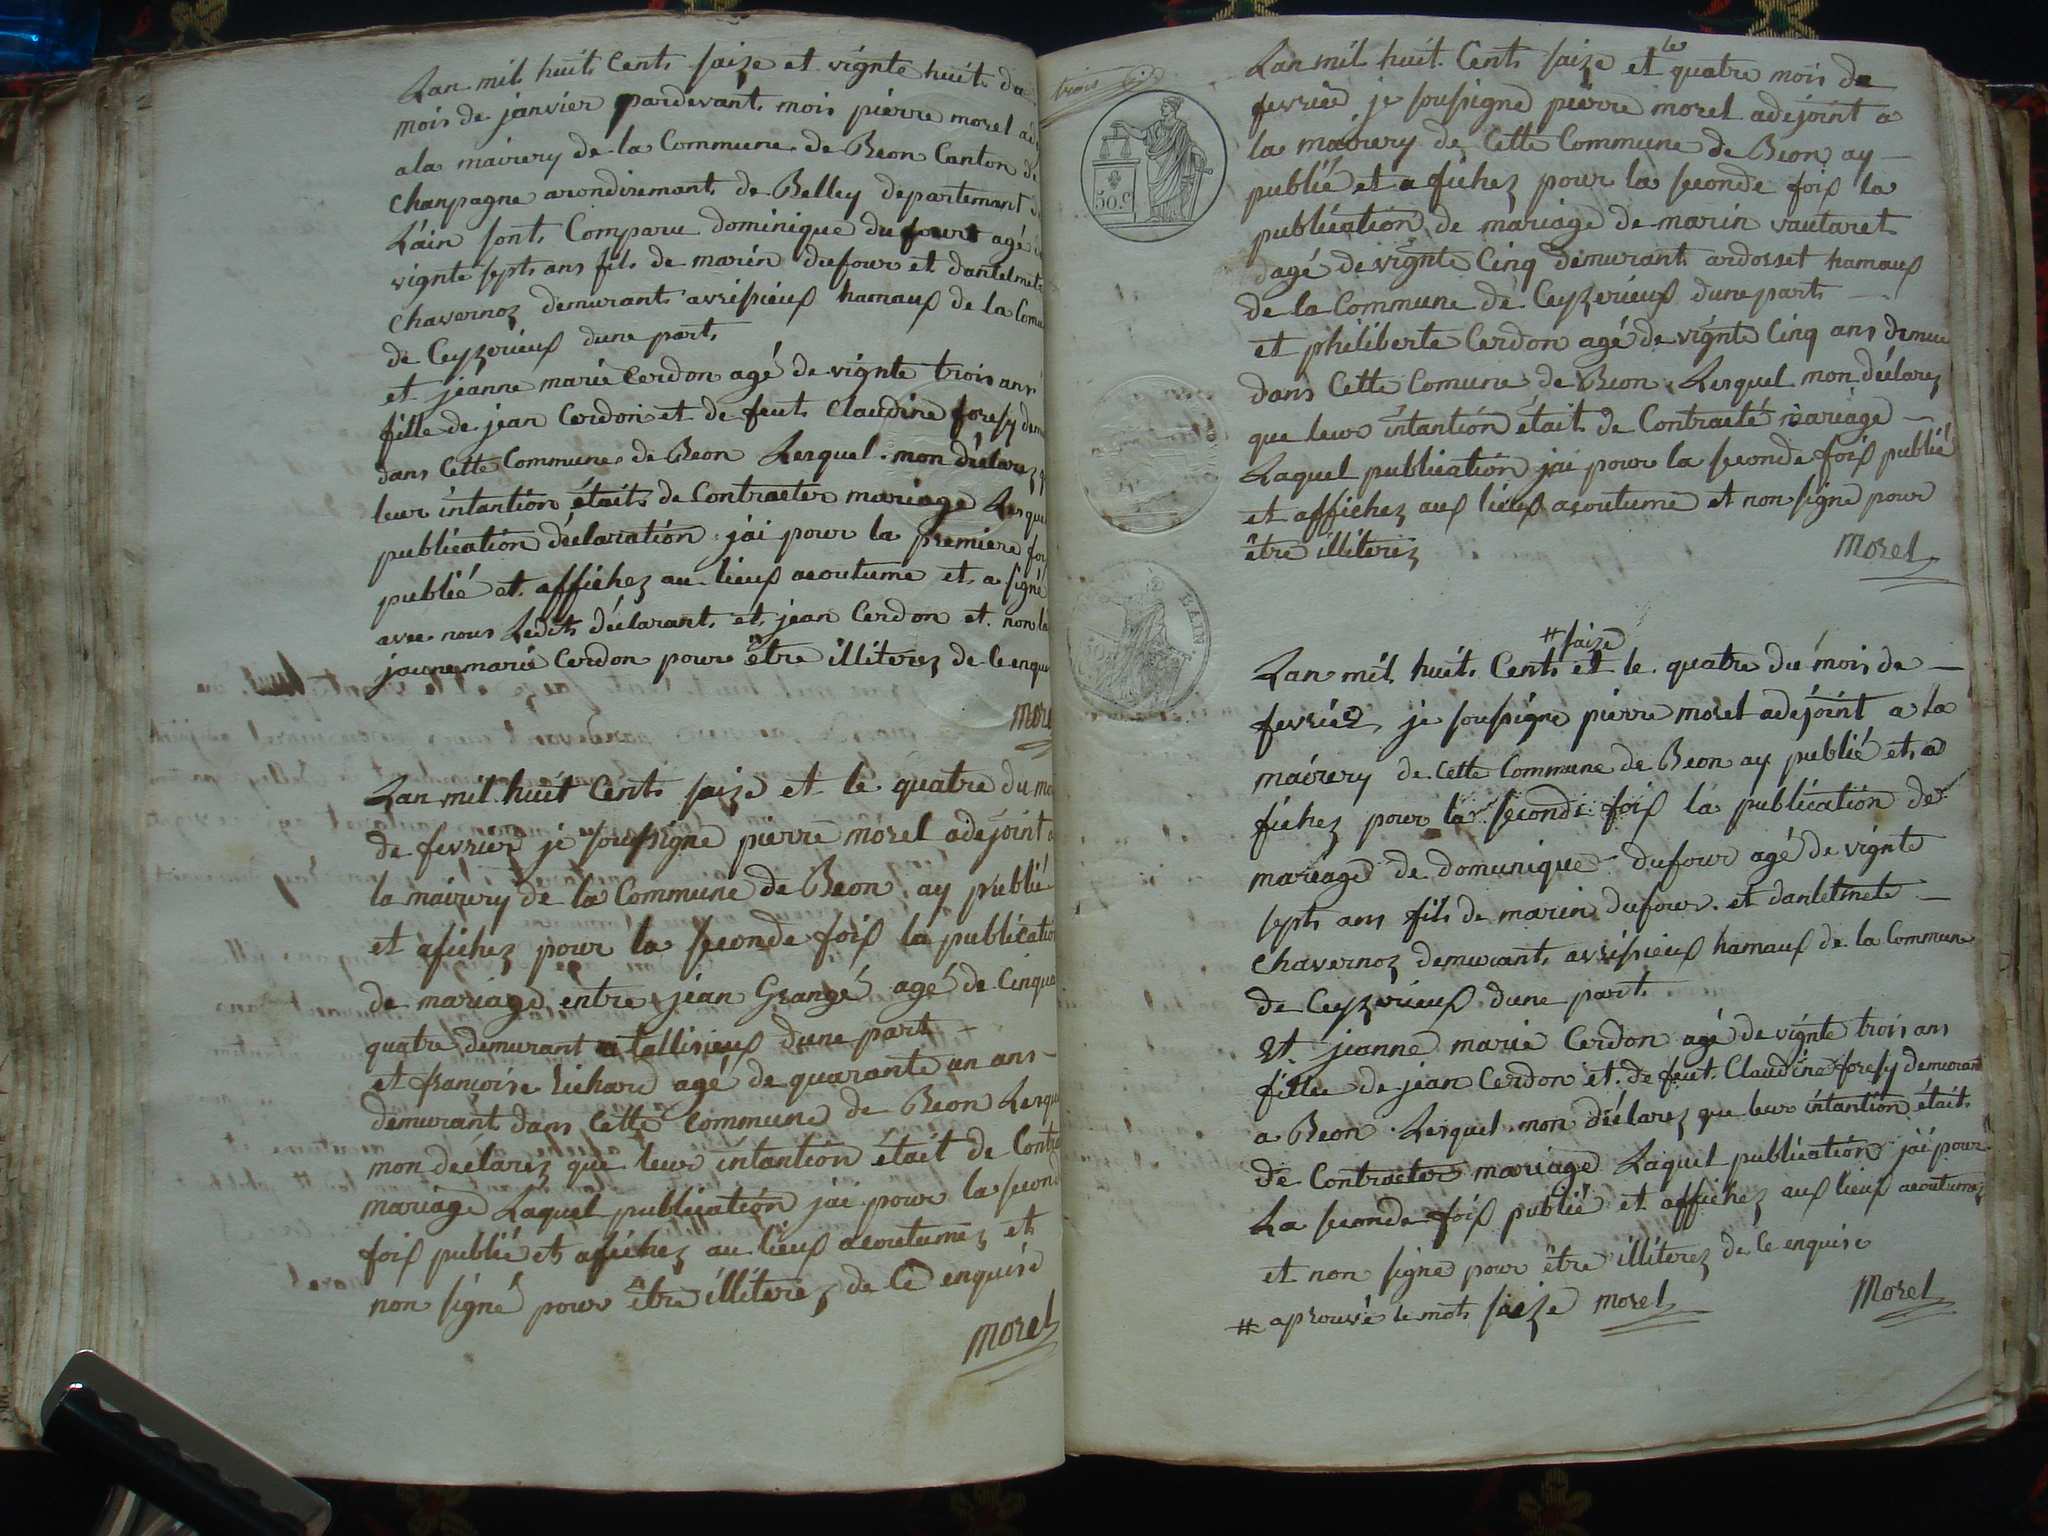 Lan mil huit Cent saize et vignte huit du
mois de janvier pardevant mois pierre morel
ala mairery de la Commune de Beon Canton de
Champagne arondisemant de Belley departemant
L'ain sont Comparu dominique dufour agé
vignte sept ans fils de marin dufour et dantelmet
Chavernoz demurant avrisieux hamaux de la
de Ceyzerieux dune part
et jeanne marie Cerdon agé de vignte trois ans
fille de jean Cerdon et de feut Claudine foresy
dans Cette Commune de Beon Lesquel mon déclarez
leur intantion était de Contracter mariage
publication déclaration jai pour la premiere
publié et affichez au lieux acoutume et a signé
avec nous Ledit déclarant et jean Cerdon et non la
jeanne marie Cerdon pour être illiterez de Ce
Morel
Lan mil huit Cent saize et le quatre du
de fevrier je soussigne pierre morel adejoint
la mairery de la Commune de Beon ay publié
et afichez pour la seconde foix la publication
de mariage entre jean Grangé agé de
quatre demurant a tallisieux dune part
et françoise Richard agé de quarante un ans
demurant dans Cette Commune de Beon
mon déclarez que leur intantion était de
mariage Laquel publication jai pour la
foix publié et afichez au lieux acoutumez et
non signé pour être illiterez de Ce enquisé
Morel
trois
50.C
Lan mil huit Cent saize et le quatre mois de
fevrier je soussigne pierre morel adejoint a
la mairery de Cette Commune de Beon ay
publié et afichez pour la seconde foix la
publication de mariage de marin vautaret
dagé de vignte Cinq demurant ardosset hamaux
de la Commune de Ceyzerieux dune part
et philiberte Cerdon agé de vignte Cinq ans
dans Cette Comune de Beon Lesquel mon déclarez
que leur intantion était de Contracté mariage
Laquel publication jai pour la seconde foix publié
et affichez aux lieux acoutume et non signe pour
être illiterez
Morel
AIN
# saize
Lan mil huit Cent et le quatre du mois de
fevrier je soussigne pierre morel adejoint a la
mairery de Cette Commune de Beon ay publié et a
fichez pour la seconde foix la publication de
mariage de domunique dufour agé de vignte
sept ans fils de marin dufour et dantelmete
Chavernoz demurant avrisieux hamaux de la Commune
de Ceyzerieux dune part
Et jeanne marie Cerdon agé de vignte trois ans
fille de jean Cerdon et de feut Claudine foresy demurant
a Beon Lesquel mon déclarez que leur intantion était
de Contracter mariage Laquel publication jai pour
La seconde foix publié et affichez aux lieux acoutumez
et non signe pour être illiterez de Ce enquise
# aprouvé le mot saize Morel
Morel